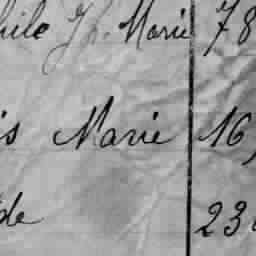 hile Jh. Marie 78
is Marie 16,
de 23